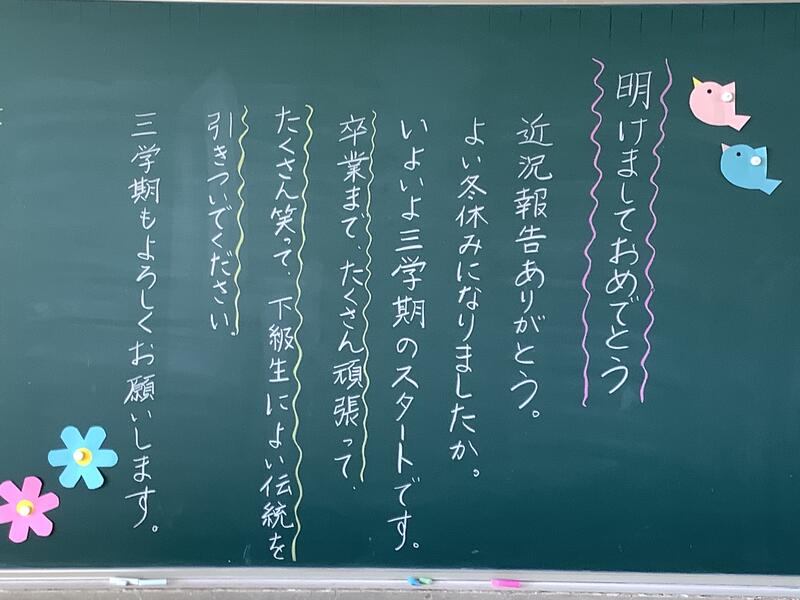 明けましておめでとう
近況報告ありがとう。
よい冬休みになりましたか。
いよいよ三学期のスタートです。
卒業まで、たくさん頑張って、
たくさん笑って、下級生によい伝統を
引きついでください。
三学期もよろしくお願いします。